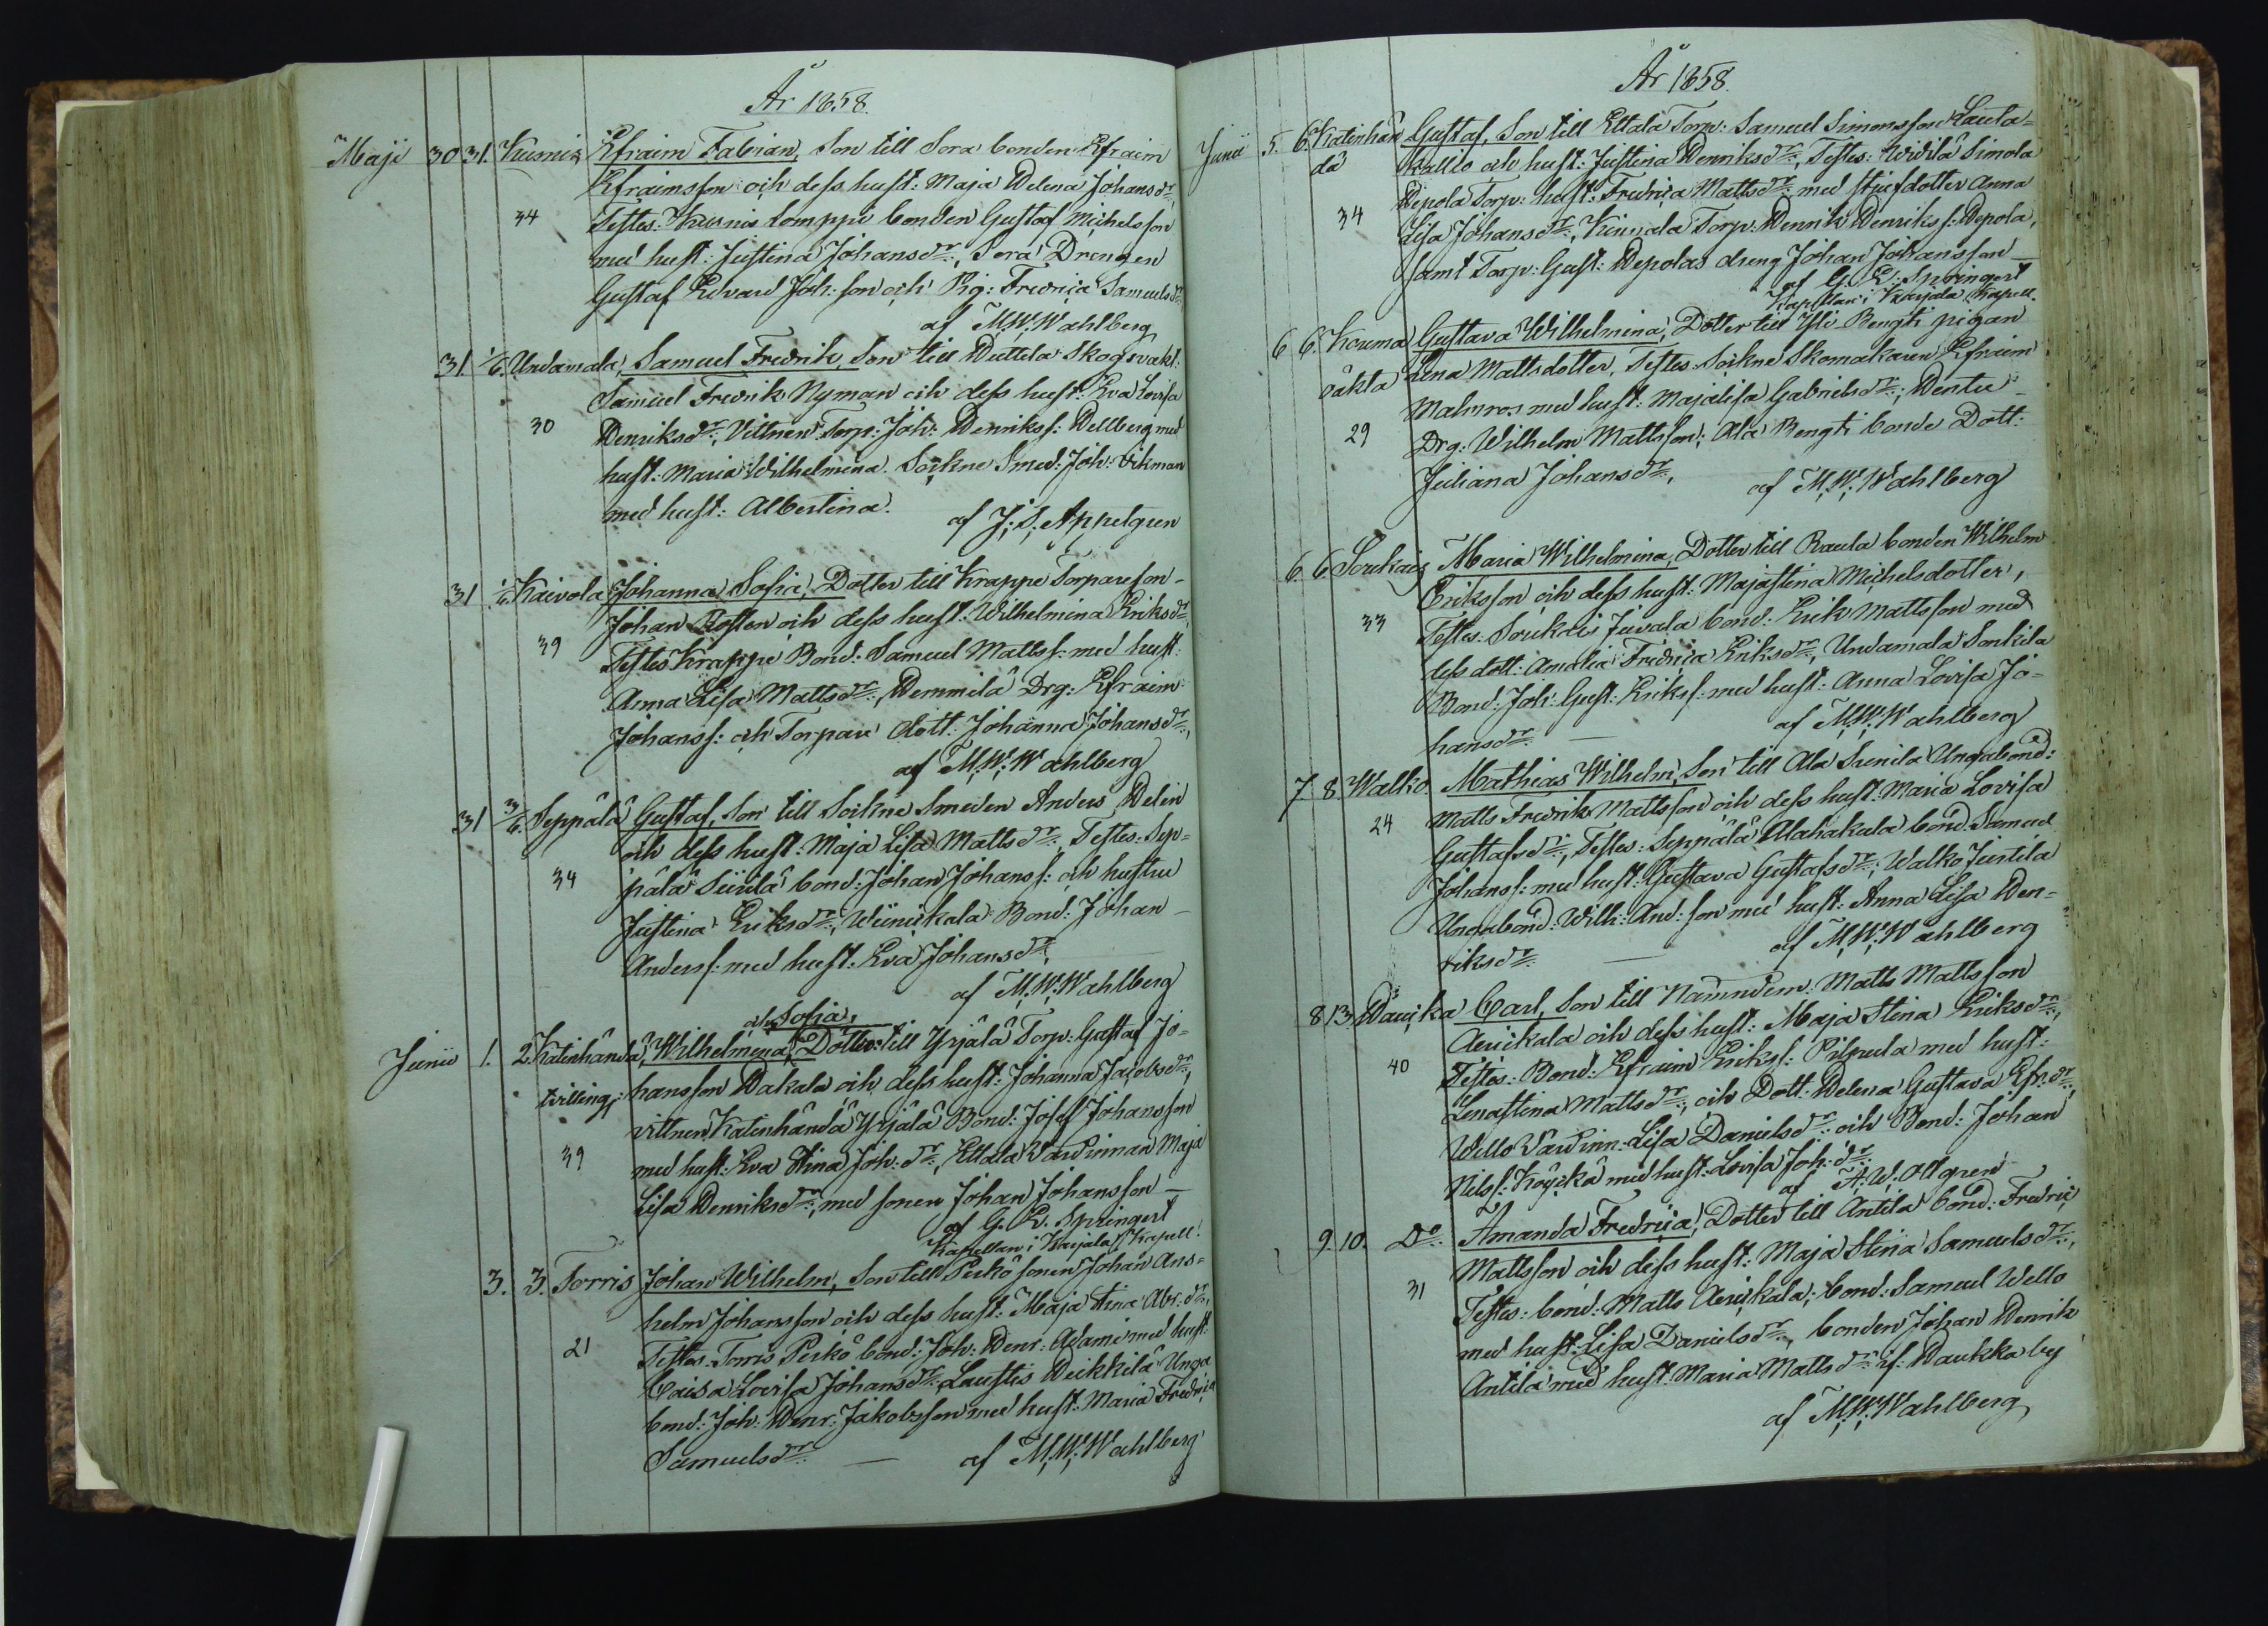 År 1858.
Maji 30 31. Kusnis Efraim Fabian, Son till Sora bonden Efraim
Efraimsson och dess hust: Maja Helena Johansdr:,
34 Testes: Kusnis Lomppi bonden Gustaf Michelsson
med hust: Justina Johansdr:, Sora Drengen
Gustaf Edvard Joh:son och Pig: Fredrica Samuelsdr
af M.W.Wahlberg
31 1/6. Undamala, Samuel Fredrik, Son till Huttila Skogsvakt:
Samuel Fredrik Nyman och dess hust: Eva Lovisa
30 Henriksdr:, Vittnen: Torp: Joh: Henrikss: Hellberg med
hust: Maria Wilhelmina. Sockne Smed: Joh: Vikman
med hust: Albertina.
af J.S. Appelgren
31 1/6. Kaivola Johanna Sofia, Dotter till Krappe Torpareson
Johan Rosten och dess hust: Wilhelmina Eriksdr
39 Testes Krappe Bond: Samuel Mattss: med hust:
Anna Lisa Mattsdr:, Hemmilä Drg: Efraim
Johanss: och Torpare dott: Johanna Johansdr:,
af M.W.Wahlberg
31 3/6. Seppälä Gustaf, Son till Sockne Smeden Anders Helin
och dess hust: Maja Lisa Mattsdr:, Testes: Sep=
34 pälä Siuila bond: Johan Johanss: och hustru
Justina Eriksdr:, Wiinikala Bond: Johan
Anderss: med hust: Eva Johansdr:,
af M.W.Wahlberg
och Sofia,
Junii 1. 2. Katinhändä, Wilhelmina, Döttrar till Yrjälä Torp: Gustaf Jo=
tvilling: hansson Hakala och dess hust: Johanna Jacobsdr:,
vittnen, Katinhändä Yrjälä Bond: Josef Johansson
39 med hust: Eva Stina Joh:dr:, Ettala Värdinnan Maja
Lisa Henriksdr:, med sonen Johan Johansson
af G. E. Springert
Kapellan i Karjala Kapell:
3. 3. Torris Johan Wilhelm, Son till Perkö sonen Johan Ans=
helm Johansson och dess hust: Maja Stina Abr:dr:,
21 Testes: Torris Perkö bond: Joh: Henr: Adami med hust:
Caisa Lovisa Johansdr:, Laustis Heikkilä Unga
bond: Joh: Henr: Jakobsson med hust: Maria Fredrica
Samuelsdr:
af M.W.Wahlberg
År 1858.
Junii 5. 6. Katinhän Gustaf, Son till Ettala Torp: Samuel Simonsson Lauta=
dä kallio och hust: Justina Henriksdr:, Testes: Widilä Simola
34 Hepola Torp: hust: Fredrica Mattsdr: med stjufdotter Anna
Lisa Johansdr:, Kinnala Torp: Henrik Henrikss: Hepola,
samt Torp: Gust: Hepolas dreng Johan Johansson
af G. E. Springert
Kapellan i Karjala Kapell.
6 6. Kouma Gustava Wilhelmina, Dotter till Yli Bengti pigan
oäkta Lena Mattsdotter, Testes: Sockne Skomakaren Efraim
Malmros med hust: Majalisa Gabrielsdr:, Hentu
29 Drg: Wilhelm Mattsson; Ala Bengti bonde Dott:
Juliana Johansdr:,
af M.W.Wahlberg
6. 6. Soukais Maria Wilhelmina, Dotter till Raula bonden Wilhelm
Eriksson och dess hust: Majastina Michelsdotter,
33 Testes: Soukais Juvala bond: Erik Mattsson med
dess dott: Amalia Fredrica Eriksdr:, Undamala Sonkila
Bond: Joh: Gust: Erikss: med hust: Anna Lovisa Jo=
hansdr:
af M.W.Wahlberg
7 8. Walko Mathias Wilhelm, Son till Ala Sunila Ungabond:
24 Matts Fredrik Mattsson och dess hust: Maria Lovisa
Gustafsdr:, Testes: Seppälä Alahakala bond: Samuel
Johanss: med hust: Gustava Gustafsdr:, Walko Justila
Ungabond: Wilh: And:son med hust: Anna Lisa Hen=
riksdr:
af M.W.Wahlberg
8 13 Haukka Carl, Son till Nämndem: Matts Mattsson
Aeuikala och dess hust: Maja Stina Eriksdr:,
40 Testes: Bond: Efraim Erikss: Pilpula med hust:
Lenastina Mattsdr:, och Dott: Helena Gustava Efr:dr:,
Wello Värdinn: Lisa Danielsdr: och Bond: Johan
Nilss: Köykä med hust: Lovisa Joh:dr:
af A. W. Ollgren
9. 10. Do: Amanda Fredrica, Dotter till Antila bond: Fredric
Mattsson och dess hust: Maja Stina Samuelsdr:,
31 Testes: bond: Matts Aeuikala; bond: Samuel Wello
med hust: Lisa Danielsdr:, bonden Johan Henrik
Antila med hust: Maria Mattsdr: if: Haukka by
af M.W.Wahlberg